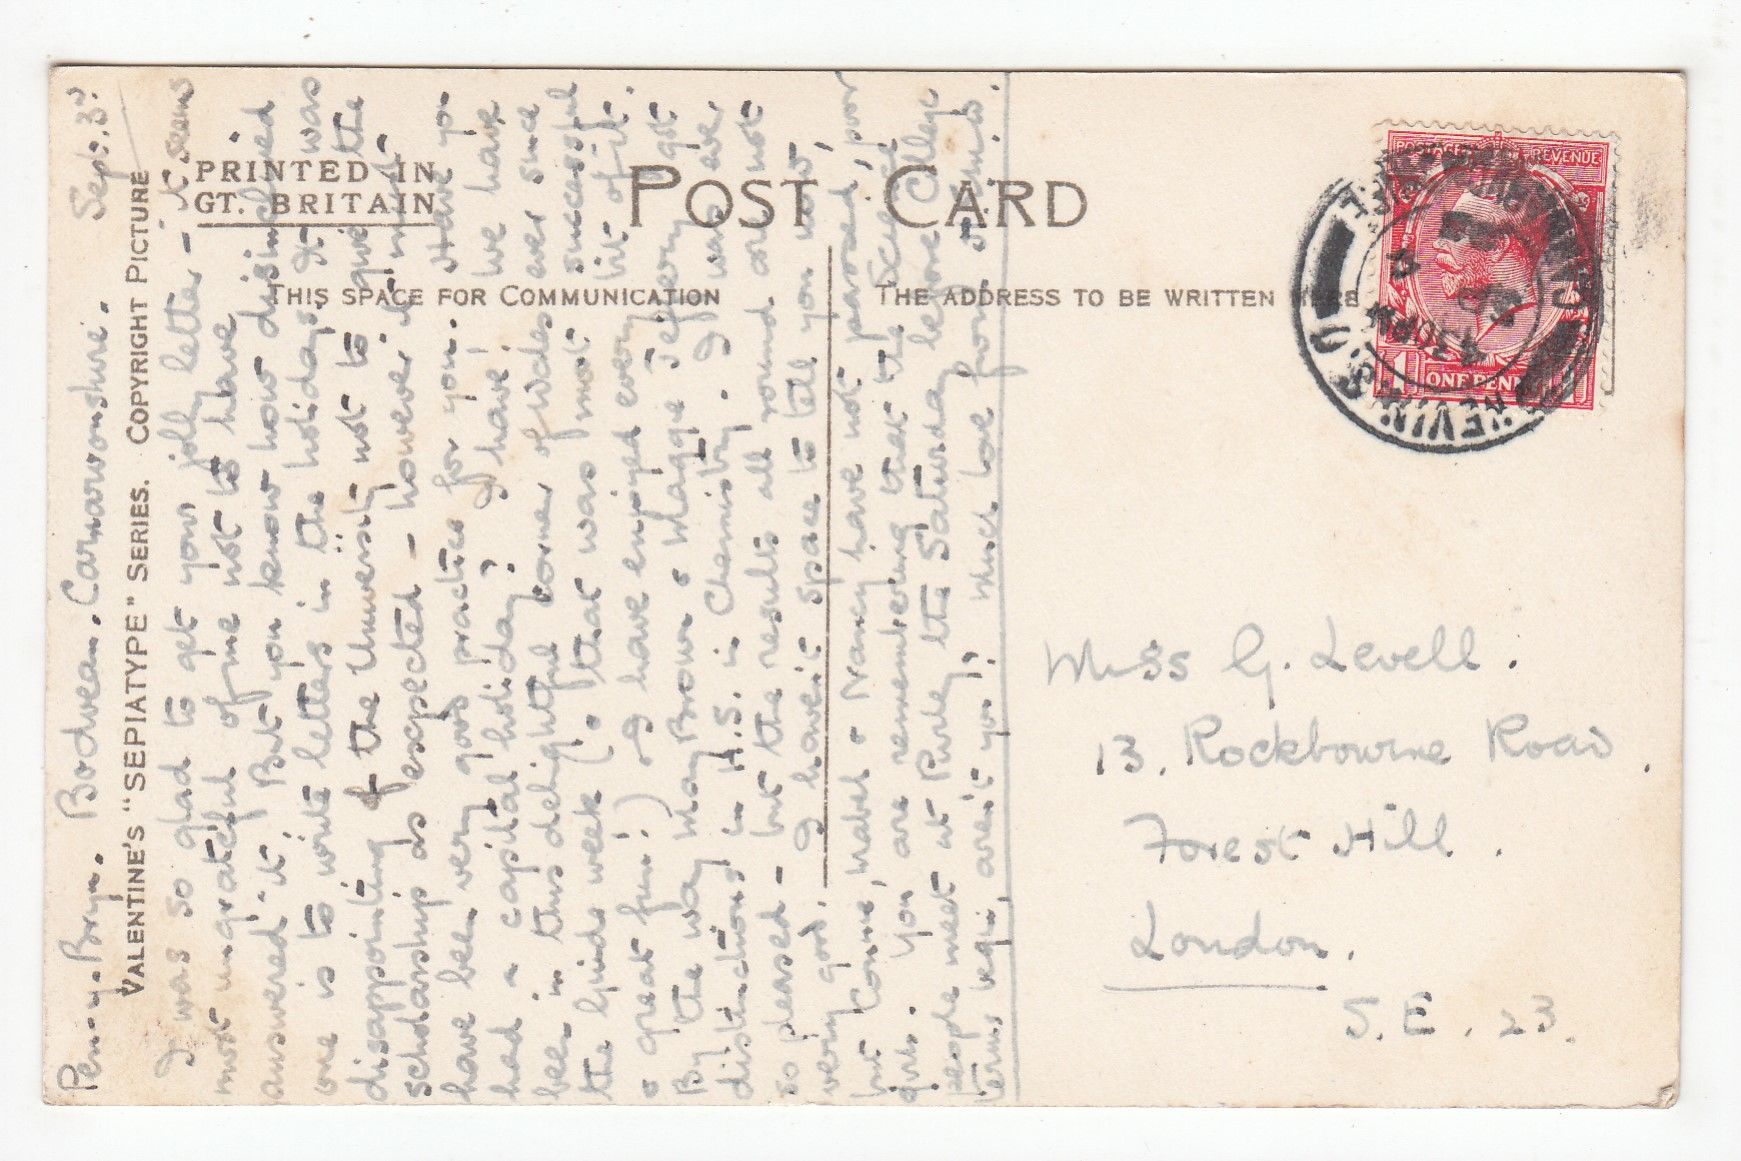 PRINTED IN
GT. BRITAIN
POST CARD
THIS SPACE FOR COMMUNICATION
THE ADDRESS TO BE WRITTEN HERE
VALENTINE'S "SEPIATYPE" SERIES. COPYRIGHT PICTURE
POSTAGE REVENUE
1 ONE PENNY
4 30 PM
Pen-y-Bryn. Bodvean. Carnarvonshire. Sept. 3rd
I was so glad to get your jolly letter - it seems
most ungrateful of me not to have
answered it. But you know how disinclined
one is to write letters in the holidays. It was
disappointing of the University not to give the
scholarships as expected - however it must
have been very good practice for you. Have you
had a capital holiday? I have! We have
been in this delightful corner of Wales ever since
the Guide week (& that was most successful
& great fun!) & I have enjoyed every bit of it.
By the way May Brown & Maggie Jeffery got
distinctions in H.S. in Chemistry. I was ever
so pleased - but the results all round are not
very good. I haven't space to tell you now,
but Connie, Mabel & Nancy have not passed, poor
girls. You are remembering that the Science
people meet at Purley the Saturday before College
terms begin, aren't you? Much love from
Miss G. Levell.
13, Rockbourne Road.
Forest Hill.
London.
S.E. 23.